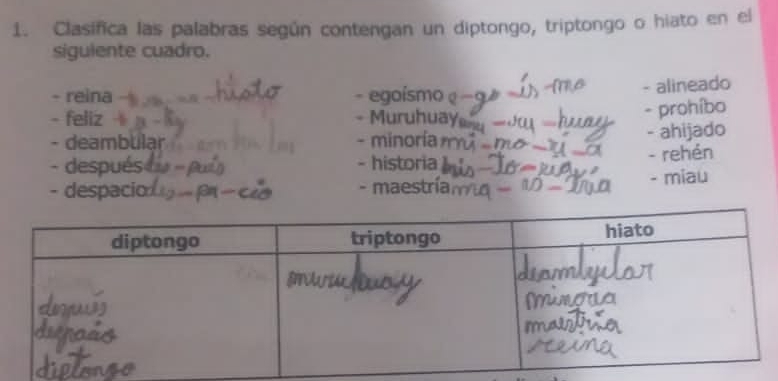 1. Clasifica las palabras según contengan un diptongo, triptongo o hiato en el
siguiente cuadro.
- reina hiato
- feliz
- deambular
- después des-pués
- despacio des-pa-cio
- egoísmo e-go-ís-mo
- Muruhuay mu-ru-huay
- minoría mi-no-rí-a
- historia his-to-ria
- maestría ma-es-tría
- alineado
- prohíbo
- ahijado
- rehén
- miau
diptongo triptongo hiato
después
despacio
diptongo
muruhuay
minoria
maestría
reina